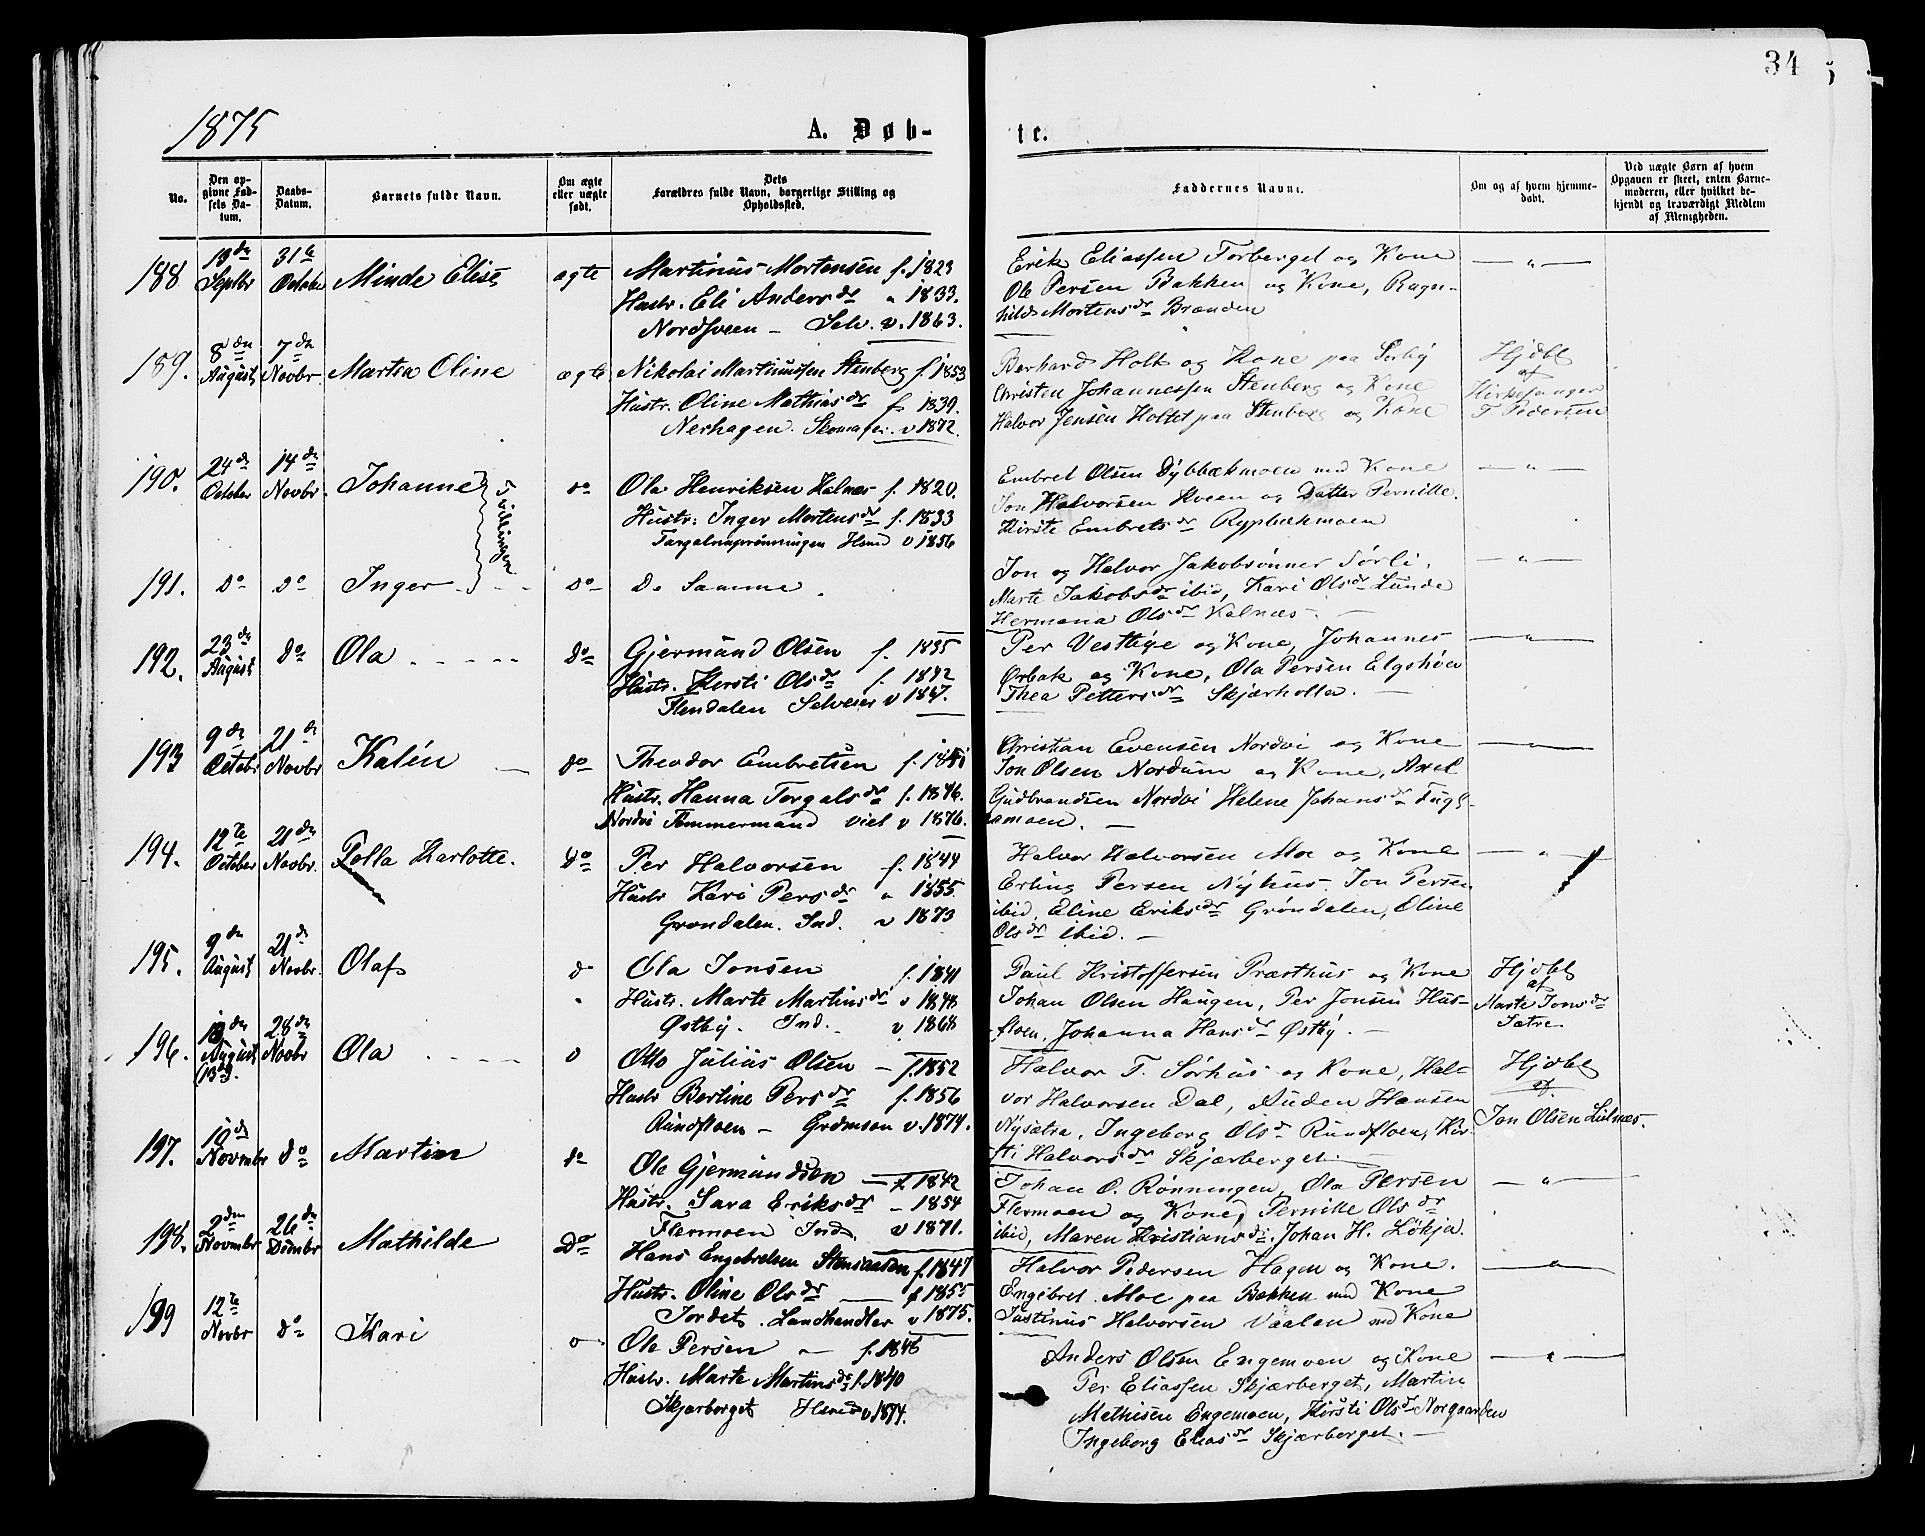 34
1875
A. Døb-
te.
No.
Den op-
givne Fød-
sels Da-
tum.
Daabs-
Datum.
Barnets fulde Navn.
Om ægte
eller uægte
født.
Dets
Forældres fulde Navn, borgerlige Stilling og
Opholdssted.
Faddernes Navne.
Om og af hvem hjemme-
døbt.
Ved uægte Børn af hvem
Opgaven er skeet, enten Barne-
moderen, eller hvilket be-
kjendt og troværdigt Medlem
af Menigheden.
188 19de Septbr 31te October Minde Elise ægte
Martinus Mortensen f. 1823
Hustr. Eli Andersdr " 1833.
Nordsveen - Selv. v. 1863.
Erik Eliassen Forberget og Kone
Ole Persen Bakken og Kone, Ragn-
hild Mortensdr Brænden
189. 8de August 7de Novbr Martha Oline ægte
Nikolai Martinussen Stenberg f. 1853
Hustr. Oline Mathiasdr f. 1839.
Nerhagen. v 1872.
Berhard Holt og Kone paa Sorby
Christen Johannessen Stenberg og Kone
Halvor Jensen Holtet paa Stenberg og Kone
Hjdbt
af
Kirkesanger
T Pedersen
190. 24de October 14de Novbr. Johanne Tvillinger do
Ola Henriksen Kalnæs f. 1820.
Hustr: Inger Mortensdr f. 1833
Husmd v 1856
Embret Olsen Dybbækmoen med Kone
Jon Halvorsen Hveen og Datter Pernille.
Kirste Embretsdr Rypbækmoen
191. do do Inger do
De Samme
Jon og Halvor Jakobsønner Sørli,
Marte Jakobsdr ibid, Kari Olsdr Lunde
Hermana Olsdr Kalnæs
192. 23de August do Ola do
Gjermund Olsen f. 1835
Hustr. Kersti Olsdr f. 1842
Flendalen Selveier v 1867.
Per Vestlige og Kone, Johannes
Ørbak og Kone, Ola Persen Elgshøa
Thea Pettersdr Skjærholla.
193 9de Octobr 21de Novbr Kalén do
Theodor Embretsen f. 1851
Hustr. Hanna Torgalsdr f. 1846.
Nordvi Tømmermand viet v 1876.
Christian Evensen Nordvi og Kone
Jon Olsen Nordum og Kone, Axel
Gudbrandsen Nordvi Helene Johansdr Fugl-
aamoen.
194. 12te October 21de Novbr. Pella Karlotte. do
Per Halvorsen f. 1844
Hustr Kari Persdr " 1855.
Grøndalen. Ind. v 1873
Halvor Halvorsen Moe og Kone
Erling Persen Nyhus. Jon Persen
ibid, Eline Eriksdr Grøndalen, Oline
Olsdr ibid.
195. 9de August 21de Novbr. Olaf do
Ola Jonsen f. 1841
Hustr. Marte Martinsdr v 1848
Østby. Ind. v 1868
Paul Kristoffersen Præsthus og Kone
Johan Olsen Haugen, Per Jonsen Hus-
floen, Johanna Hansdr Østby.
Hjdbt
af
Marte Jonsdr
Sætre
196. August (13de). 28de Novbr Ola
Otto Julius Olsen f. 1852
Hustr Bertine Persdr f. 1856
Rundfloen - v. 1874.
Halvor T. Sørhus og Kone, Hal-
vor Halvorsen Dal, Auden Hansen
Nysætra, Ingeborg Olsdr Rundfloen, Kir-
sti Halvorsdr Skjærberget.
Hjdbt
af
Jon Olsen Lulnæs.
197. 10de Novembr do Martin do
Ole Gjermundsen f. 1842
Hustr. Sara Eriksdr - 1854
Flermoen Ind. v 1871.
Johan O. Rønningen, Ola Persen
Flermoen og Kone, Pernille Olsdr
ibid, Maren Kristiansdr. Johan H. Løkja.
198. 2den Novmbr 26de Dcembr Mathilde Do
Hans Engebretsen f. 1847
Hustr. Oline Olsdr f. 1855
Jordet. Landhandler v 1875.
Halvor Pedersen Hagen og Kone.
Engebret Moe paa Bakken med Kone
Justinus Halvorsen Vaalen md Kone
199 12te Novbr do Kari
Ole Persen f. 1846
Hustr. Marte Martinsdr f. 1840
Skjærberget Husmd v 1874.
Anders Olsen Engemoen og Kone
Per Eliassen Skjærberget, Martin
Mathisen Engemoen, Kirsti Olsdr Norgaarden
Ingeborg Eliasdr Skjærberget.